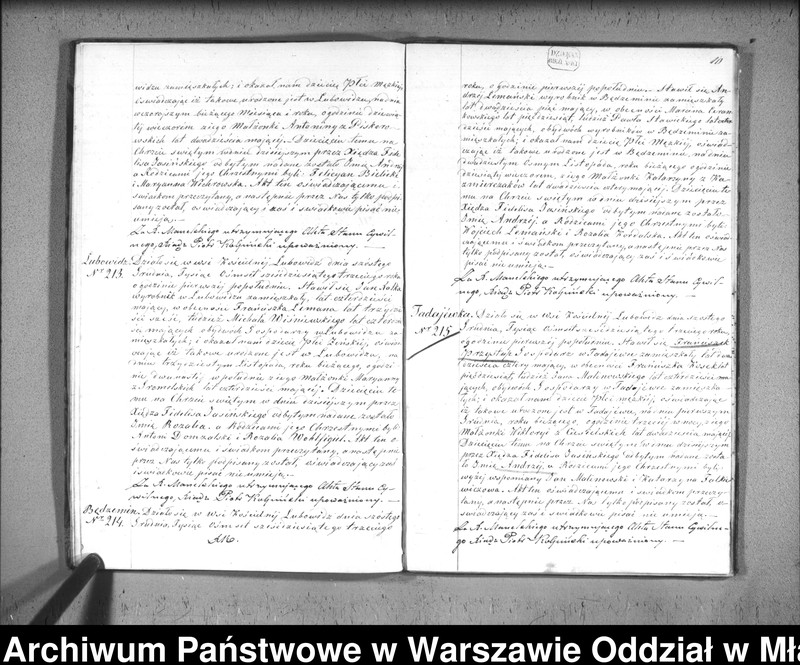 widzu zamieszkałych; i okazał nam dziecię Płci Męzkiej
oświadczając iż takowe urodzone jest w Lubowidzu, na dniu
wczorajszym bieżącego Miesiąca i roku, o godzinie dziewią-
tej wieczorem z jego Małżonki Antoniny z Piskoro-
wskich lat dwadzieścia mającej. Dziecięciu temu na
Chrzcie Świętym w dniu dzisiejszym przez Xiędza Fide-
lisa Jasińskiego odbytym nadane zostało Imię
a Rodzicami jego Chrzestnymi byli Felicyan Bielicki
i Maryanna Wichrowska. Akt ten oświadczającemu i
świadkom przeczytany, a następnie przez Nas tylko podpi-
sany został, oświadczający zaś i świadkowie pisać nie
umieją.
Za A. Manelskiego utrzymującego Akta Stanu Cywil-
nego, Xiądz Piotr Kałpiński upoważniony.
Lubowidz
Nr 213.
Działo się w wsi Kościelnej Lubowidz dnia szóstego
Grudnia, Tysiąc Ośmset sześćdziesiątego trzeciego roku
o godzinie pierwszej popołudniu. Stawił się Jan
wyrobnik w Lubowidzu zamieszkały, lat czterdzieści
mający, w obecności Franciszka Lemana lat trzydzie-
ści sześć, tudzież Michała Wiśniewskiego lat czterdzie-
ści mających, obydwóch Gospodarzy w Lubowidzu za-
mieszkałych; i okazał nam dziecię Płci Żeńskiej, oświad-
czając iż takowe urodzone jest w Lubowidzu, na
dniu trzydziestym Listopada, roku bieżącego, o godzi-
nie dwunastej w południe z jego Małżonki Maryanny
z lat czterdzieści mającej. Dziecięciu te-
mu na Chrzcie Świętym w dniu dzisiejszym przez
Xiędza Fidelisa Jasińskiego odbytym nadane zostało
Imię Rozalia, a Rodzicami jego Chrzestnymi byli
Antoni Domzalski i Rozalia. Akt ten o-
świadczającemu i świadkom przeczytany, a następnie
przez Nas tylko podpisany został, oświadczający zaś
i świadkowie pisać nie umieją.
Za A. Manelskiego utrzymującego Akta Stanu Cy-
wilnego, Xiądz Piotr Kałpiński upoważniony.
Będzemin
Nr 214.
Działo się w wsi Kościelnej Lubowidz dnia szóstego
Grudnia, Tysiąc Ośmset sześćdziesiątego trzeciego
10
roku, o godzinie pierwszej popołudniu. Stawił się An-
drzej Lemański wyrobnik w Będzeminie zamieszkały
lat dwadzieścia pięć mający, w obecności Marcina
lat pięćdziesiąt, tudzież Pawła Sławickiego lat
mających, obydwóch wyrobników w Będzeminie za-
mieszkałych; i okazał nam dziecię Płci Męzkiej, oświad-
czając iż takowe urodzone jest w Będzeminie na dniu
dwudziestym ósmym Listopada, roku bieżącego o godzinie
dziewiątej wieczorem, z jego Małżonki Katarzyny z Ka-
źmierczaków lat dwadzieścia cztery mającej. Dziecięciu te-
mu na Chrzcie Świętym w dniu dzisiejszym przez
Xiędza Fidelisa Jasińskiego odbytym nadane zostało
Imię Andrzej, a Rodzicami jego Chrzestnymi byli
Wojciech Lemański i Rozalia. Akt ten oświad-
czającemu i świadkom przeczytany, a następnie przez Nas
tylko podpisany został, oświadczający zaś i świadkowie
pisać nie umieją.
Za A. Manelskiego utrzymującego Akta Stanu Cywil-
nego, Xiądz Piotr Kałpiński upoważniony.
Tadajówka
Nr 215.
Działo się w wsi Kościelnej Lubowidz dnia szóstego
Grudnia, Tysiąc Ośmset sześćdziesiątego trzeciego roku,
o godzinie pierwszej popołudniu. Stawił się Franciszek
Przystup Gospodarz w Tadajówce zamieszkały, lat dwa-
dzieścia cztery mający, w obecności Franciszka
pięćdziesiąt, tudzież Jana Malinowskiego lat czterdzieści ma-
jących, obydwóch Gospodarzy w Tadajówce zamieszka-
łych; i okazał nam dziecię Płci męzkiej, oświadczając
iż takowe urodzone jest w Tadajówce, na dniu pierwszym
Grudnia, roku bieżącego, o godzinie trzeciej z rana, z jego
Małżonki Wiktoryi z lat dwadzieścia mającej.
Dziecięciu temu na Chrzcie Świętym w dniu dzisiejszym
przez Xiędza Fidelisa Jasińskiego odbytym nadane zosta-
ło Imię Andrzej, a Rodzicami jego Chrzestnymi byli
wyżej wspomniony Jan Malinowski i Katarzyna
Akt ten oświadczającemu i świadkom przeczy-
tany, a następnie przez Nas tylko podpisany został, o-
świadczający zaś i świadkowie pisać nie umieją.
Za A. Manelskiego utrzymującego Akta Stanu Cywilne-
go Xiądz Piotr Kałpiński upoważniony.
Archiwum Państwowe w Warszawie Oddział w Mła